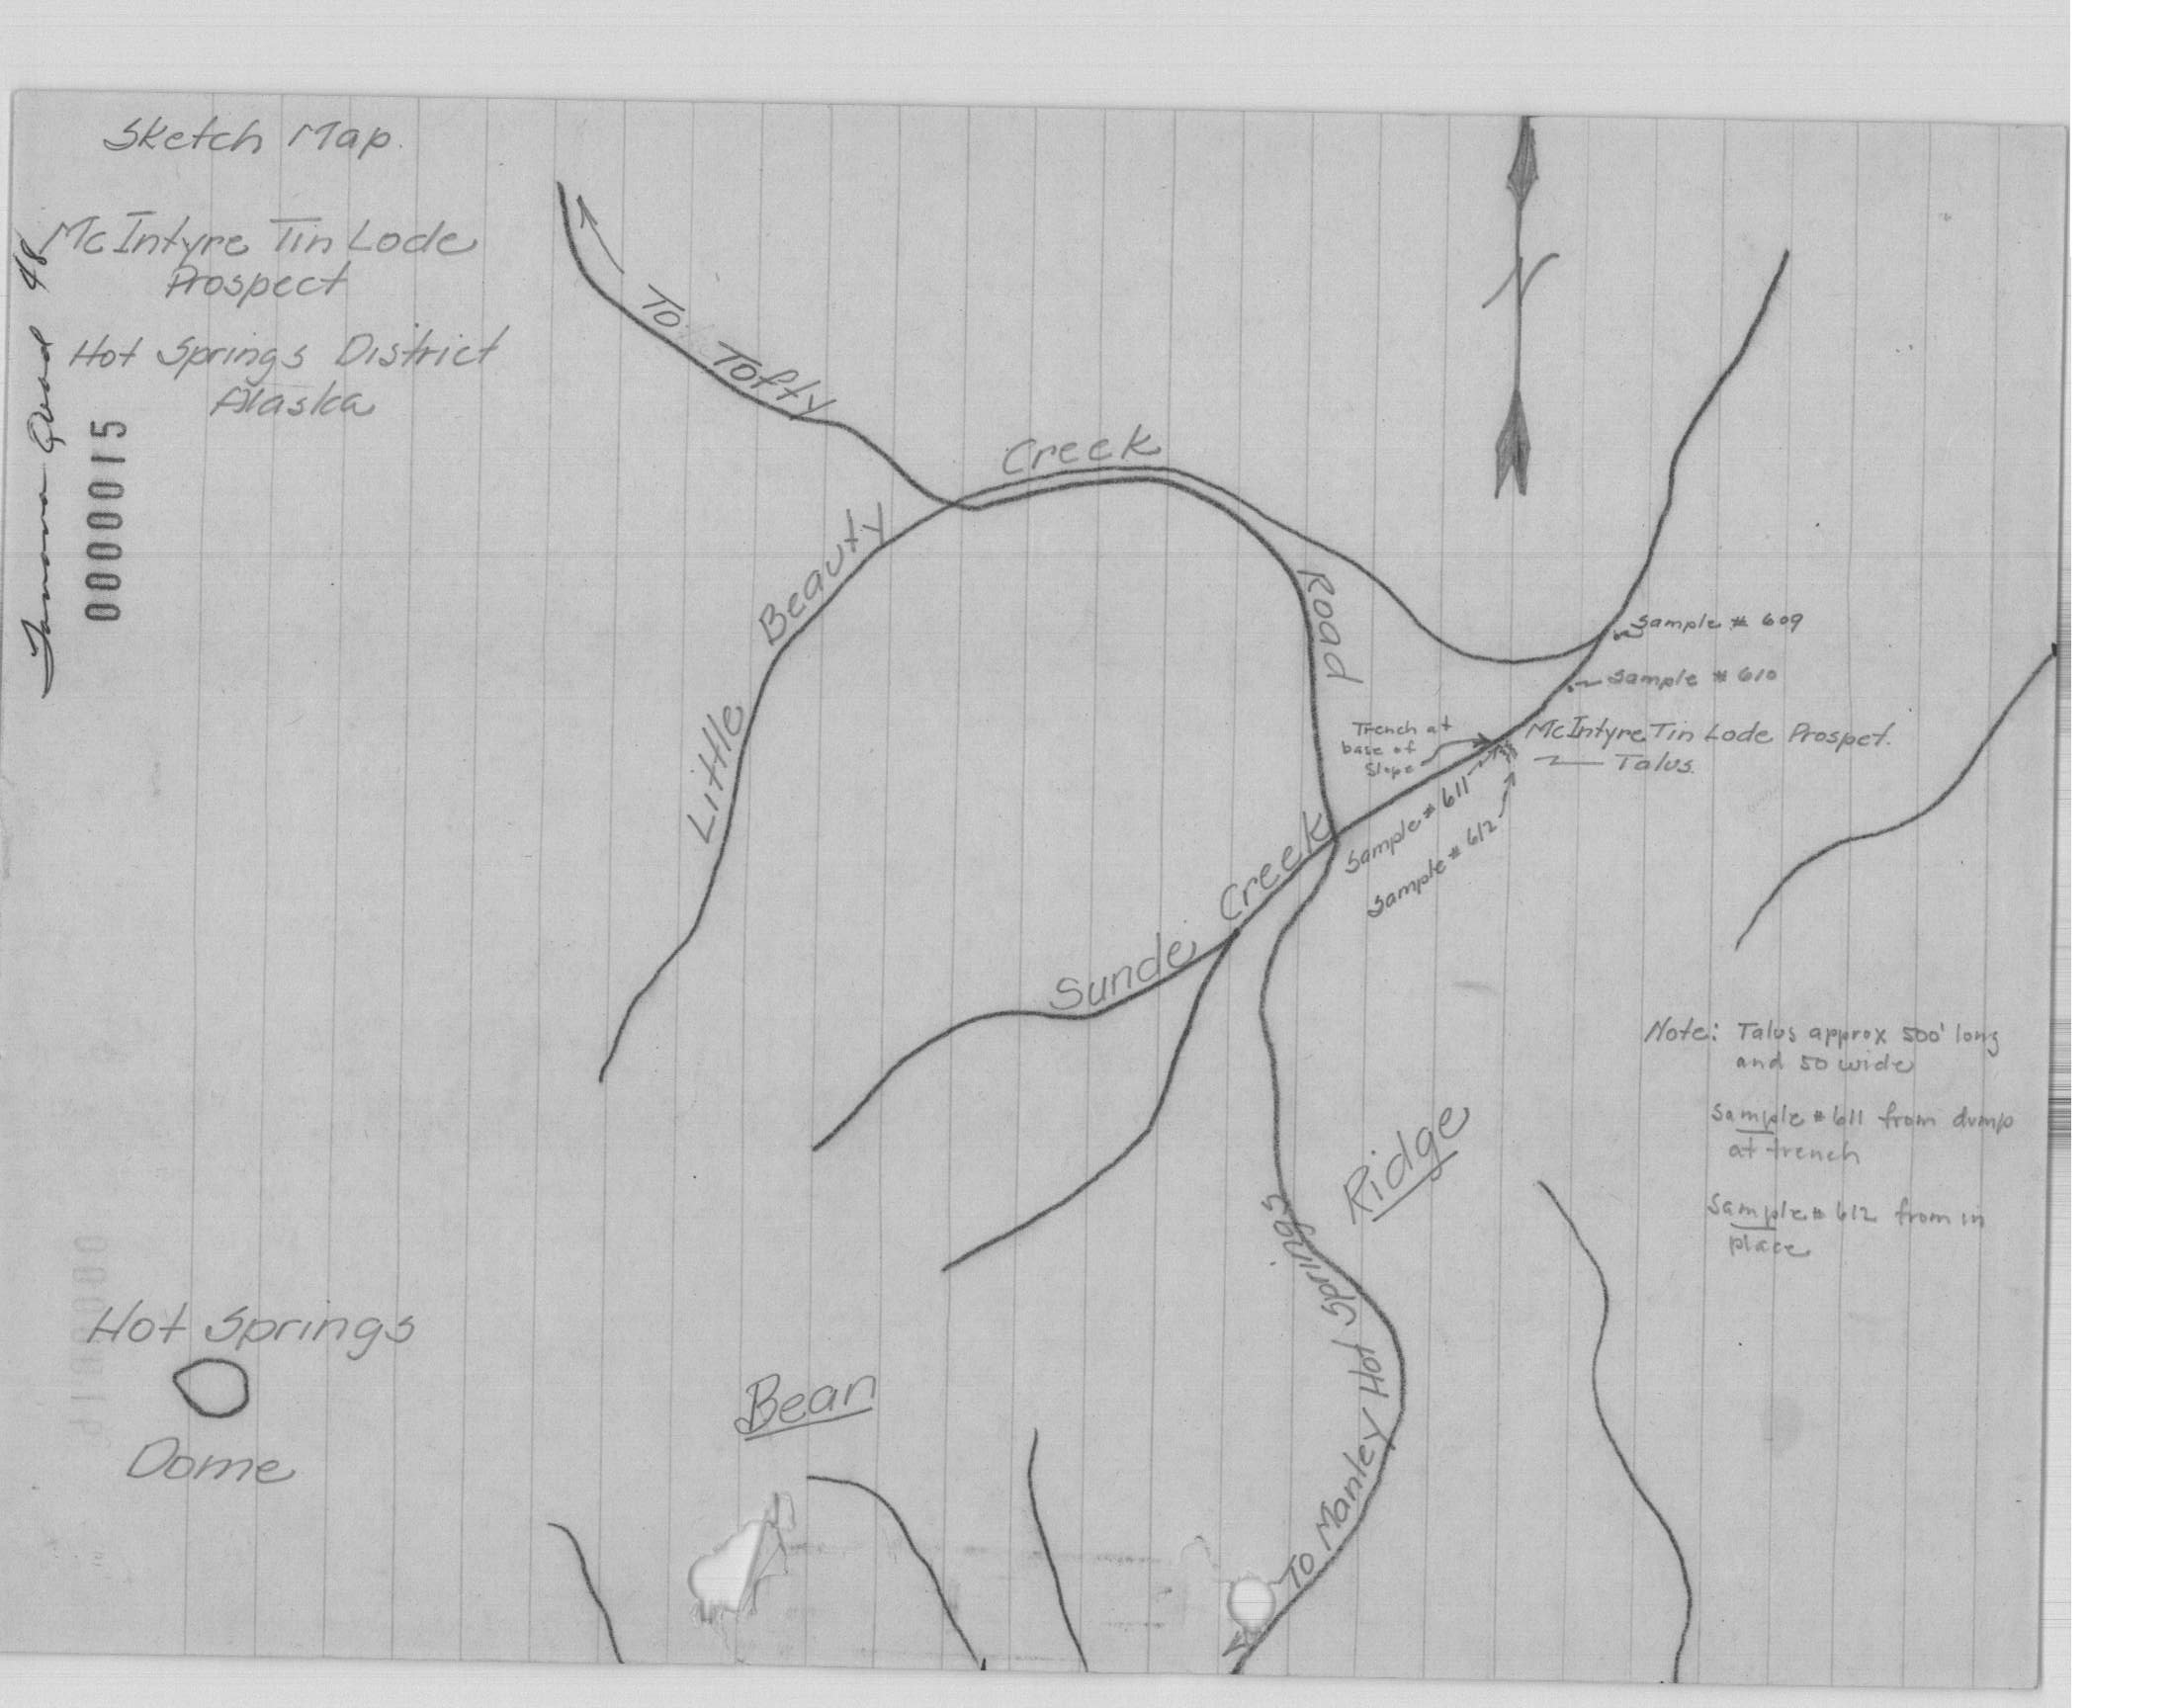 Sketch Map.
McIntyre Tin Lode
Prospect
Hot Springs District
Alaska
Tanana Quad 48
0000015
To Tofty
Creek
Beauty
Little
Road
N
Sample # 609
Sample # 610
McIntyre Tin Lode Prospet.
Talus.
Trench at
base of
Slope
Sample # 611
Sample # 612
Sunde Creek
Note: Talus approx 500' long
and 50 wide
Sample # 611 from dump
at trench
Sample # 612 from in
place
Ridge
Bean
To Manley Hot Springs
Hot Springs
Dome